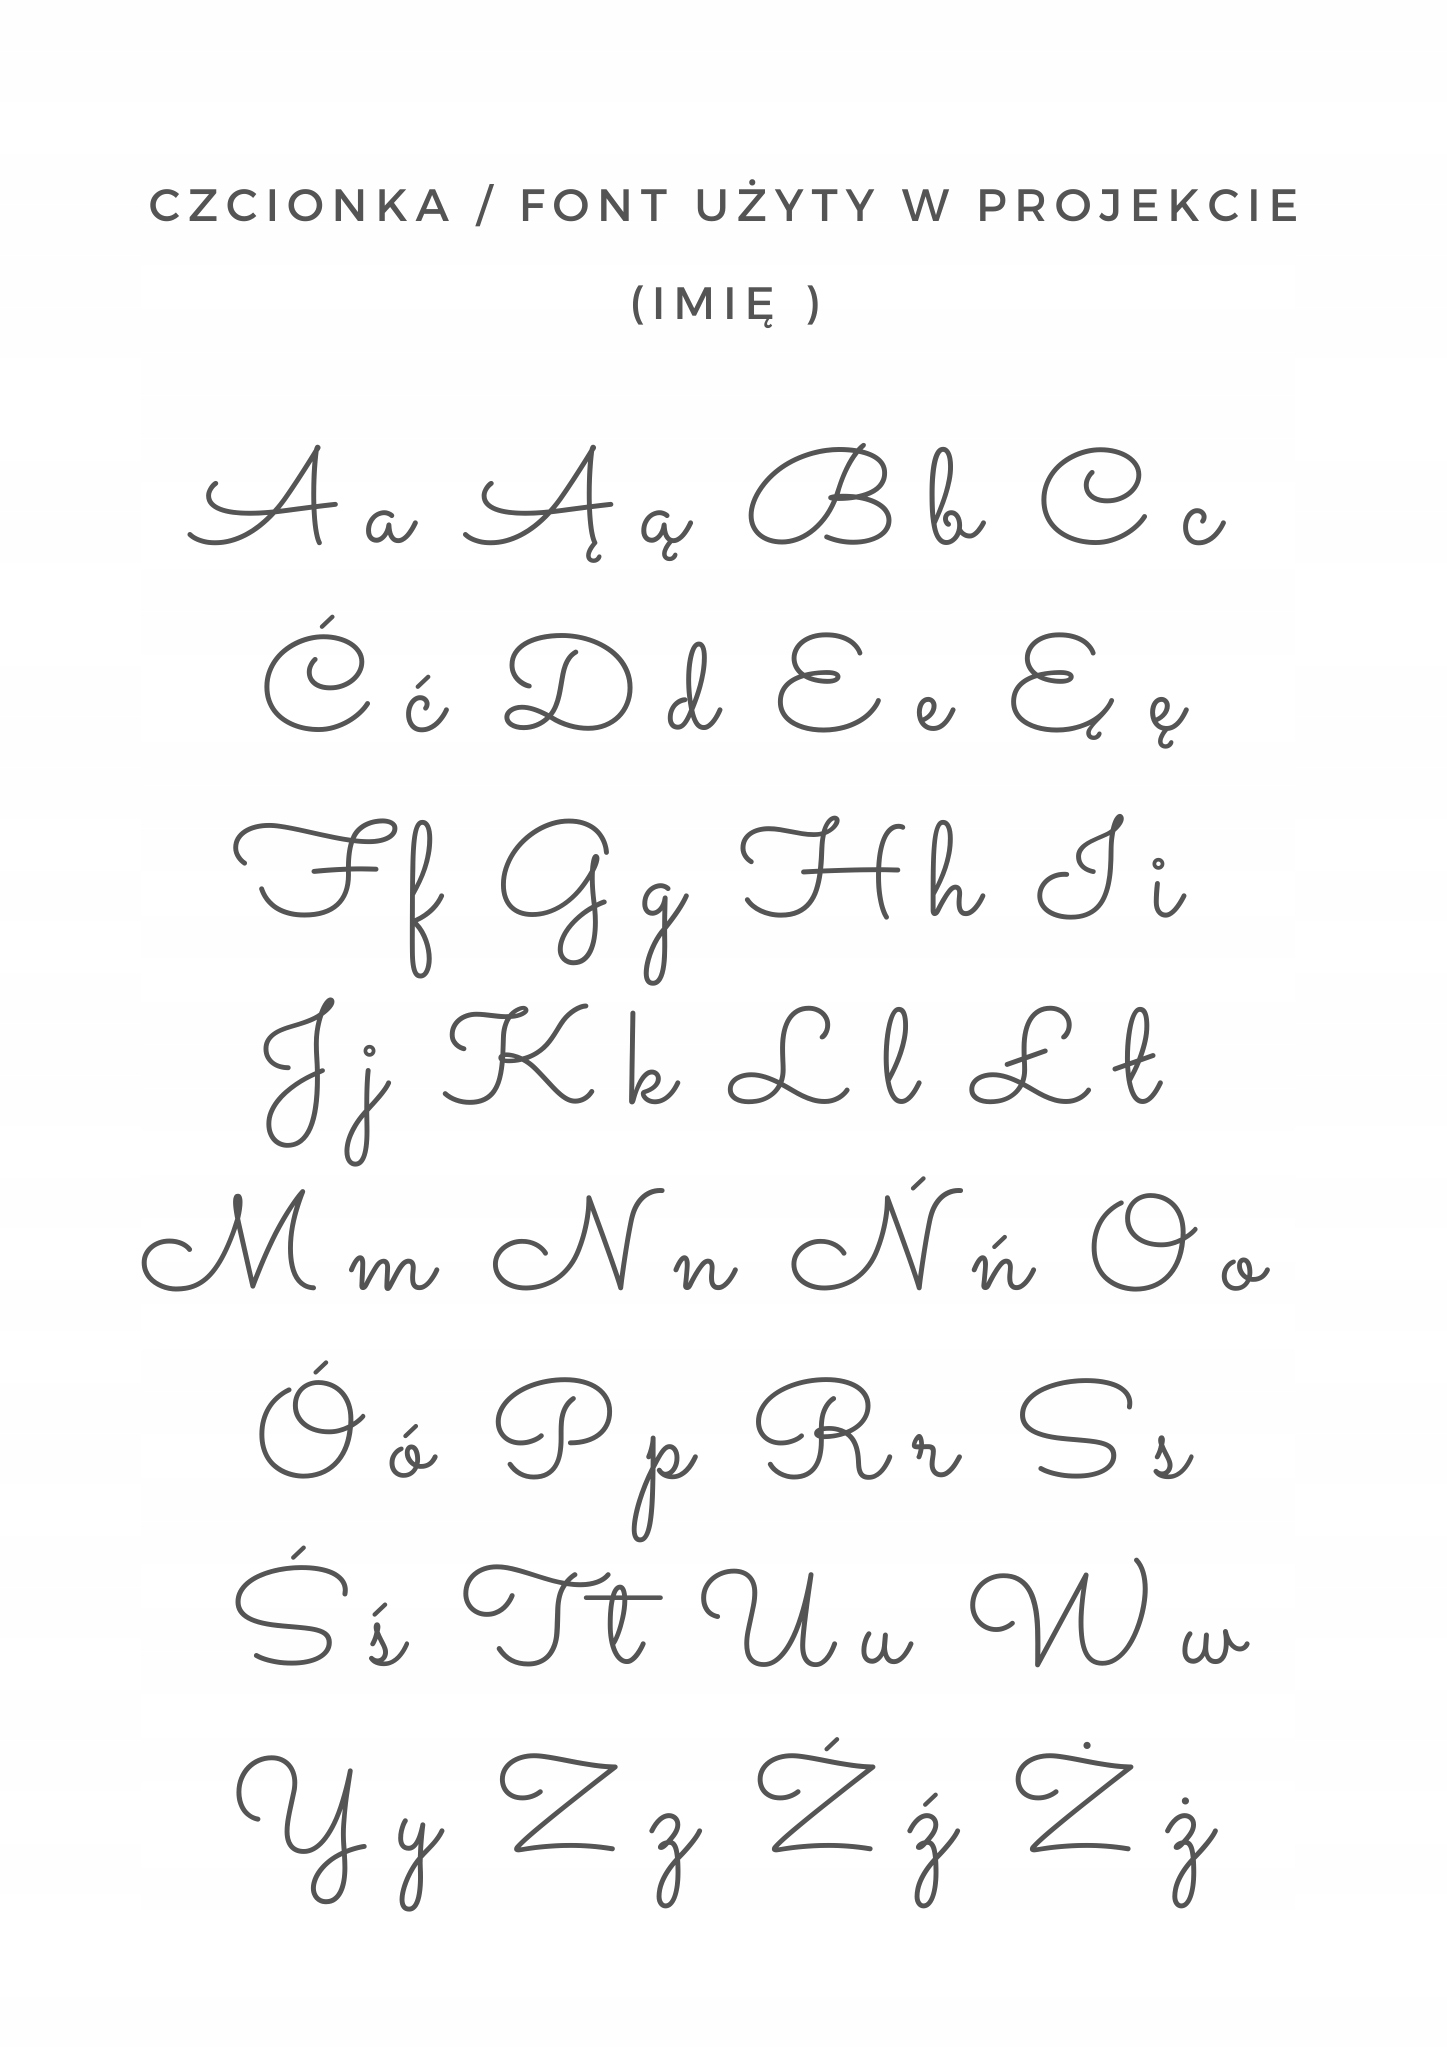 CZCIONKA / FONT UŻYTY W PROJEKCIE
(IMIĘ )
A a Ą ą B b C c
Ć ć D d E e Ę ę
F f G g H h I i
J j K k L l Ł ł
M m N n Ń ń O o
Ó ó P p R r S s
Ś ś T t U u W w
Y y Z z Ź ź Ż ż